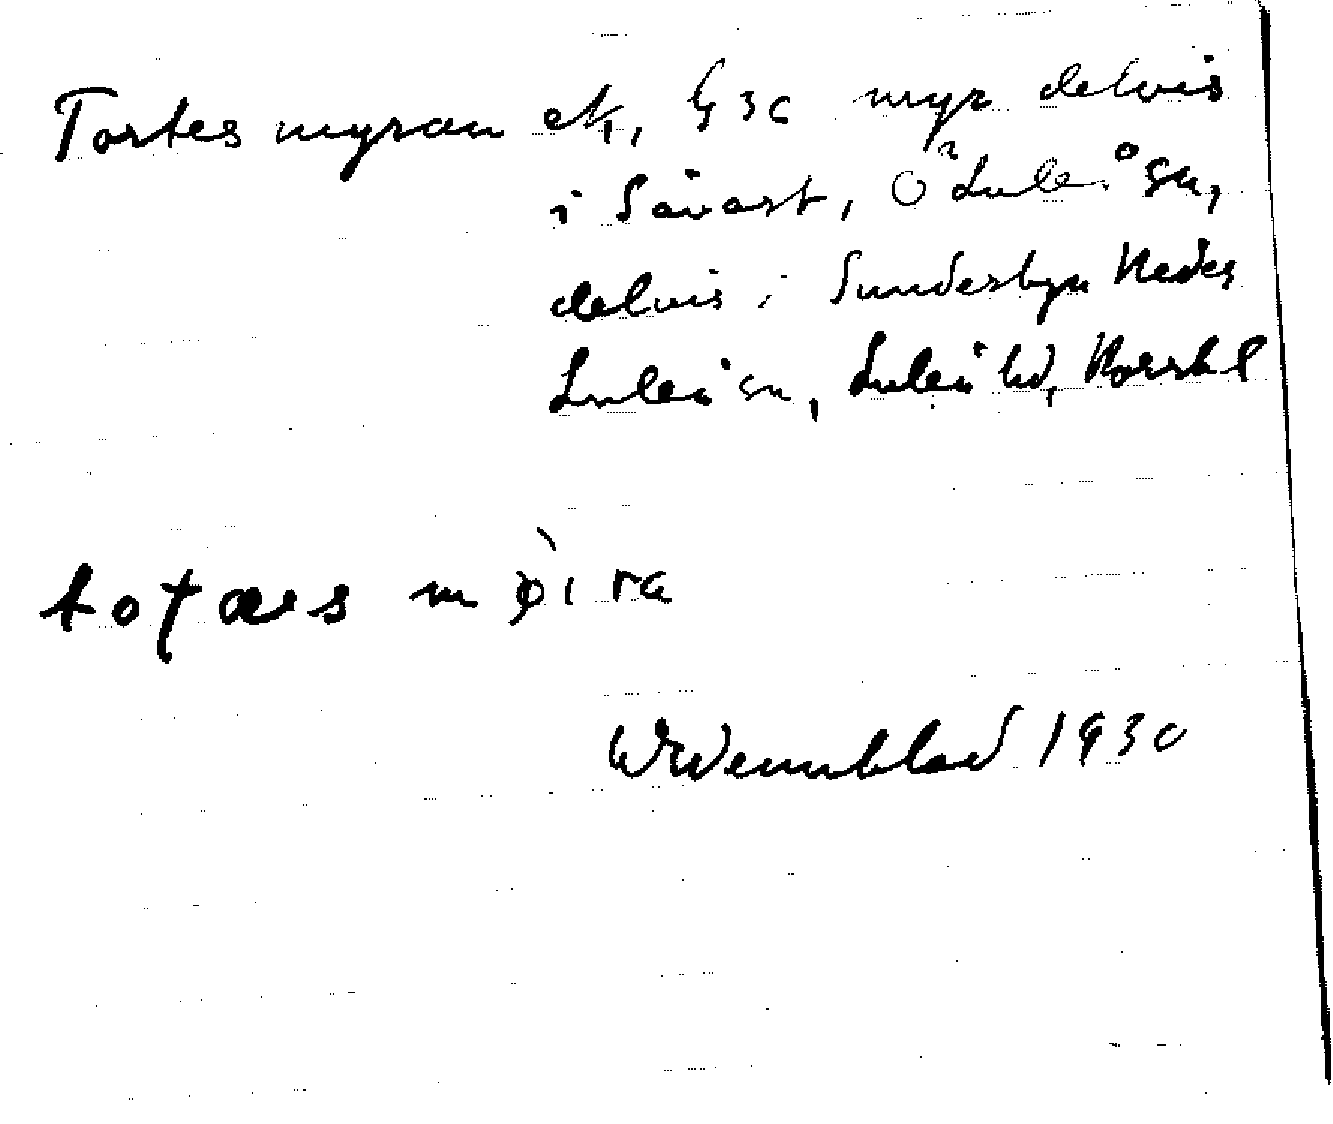 Tortesmyran ek, G3c myr delvis
i Sävast, Ö Luleå sn,
delvis i Sunderbyn Neder
Luleå sn, Luleå hd, Norrbl
Wennblad 1930